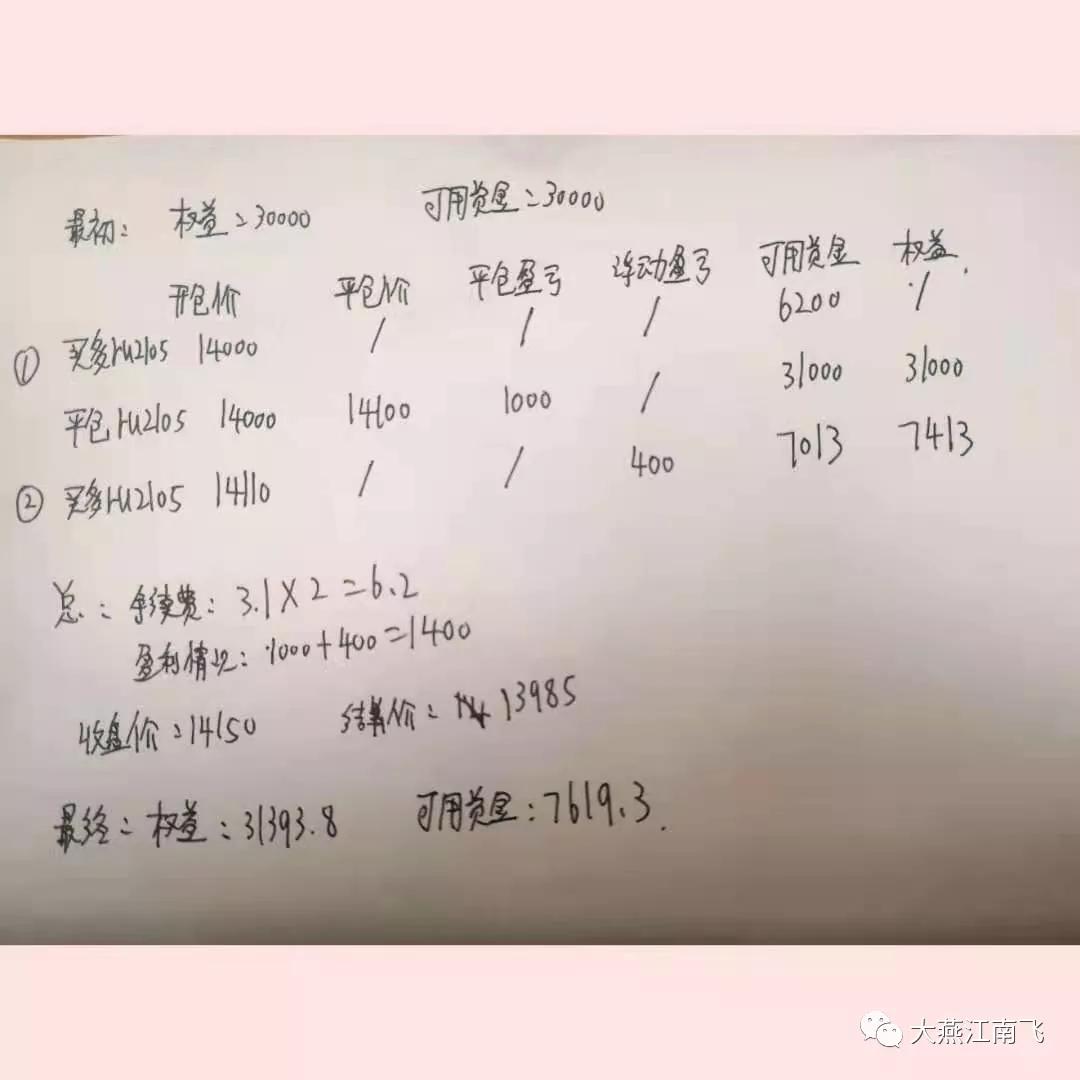 最初： 权益=30000 可用资金=30000
开仓价 平仓价 平仓盈亏 浮动盈亏 可用资金 权益
① 买多ru2105 14000 / / / 6200 /
平仓ru2105 14000 14100 1000 / 31000 31000
② 买多ru2105 14110 / / 400 7013 7413
总：手续费：3.1×2=6.2
盈利情况：1000+400=1400
收盘价=14150 结算价=13985
最终：权益：31393.8 可用资金：7619.3.
大燕江南飞